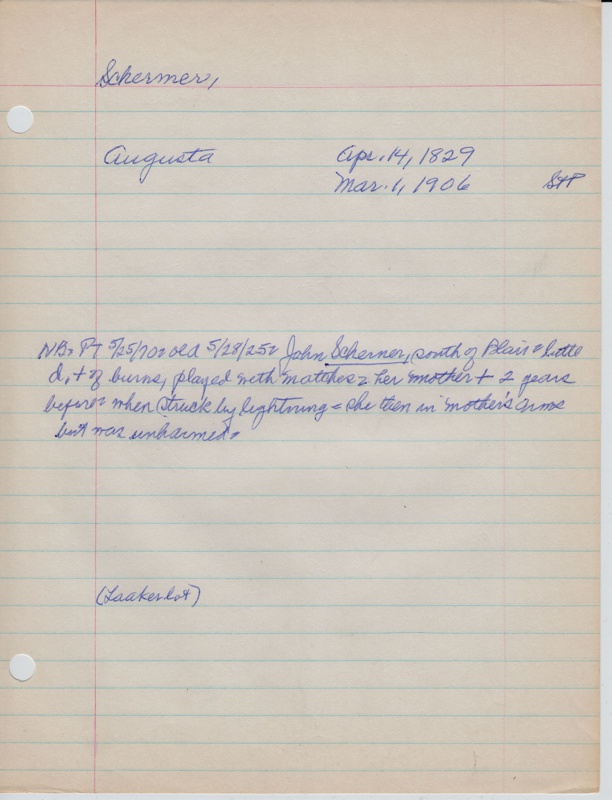 Schermer,
Augusta Apr. 14, 1829
Mar. 1, 1906
NB= PT 5/25/70= old 5/28/25= John Schermer, south of Blair= little
d. + of burns, played with matches= her mother + 2 years
before= when struck by lightning= she then in mother's arms
but was unharmed=
(Laaker lot)